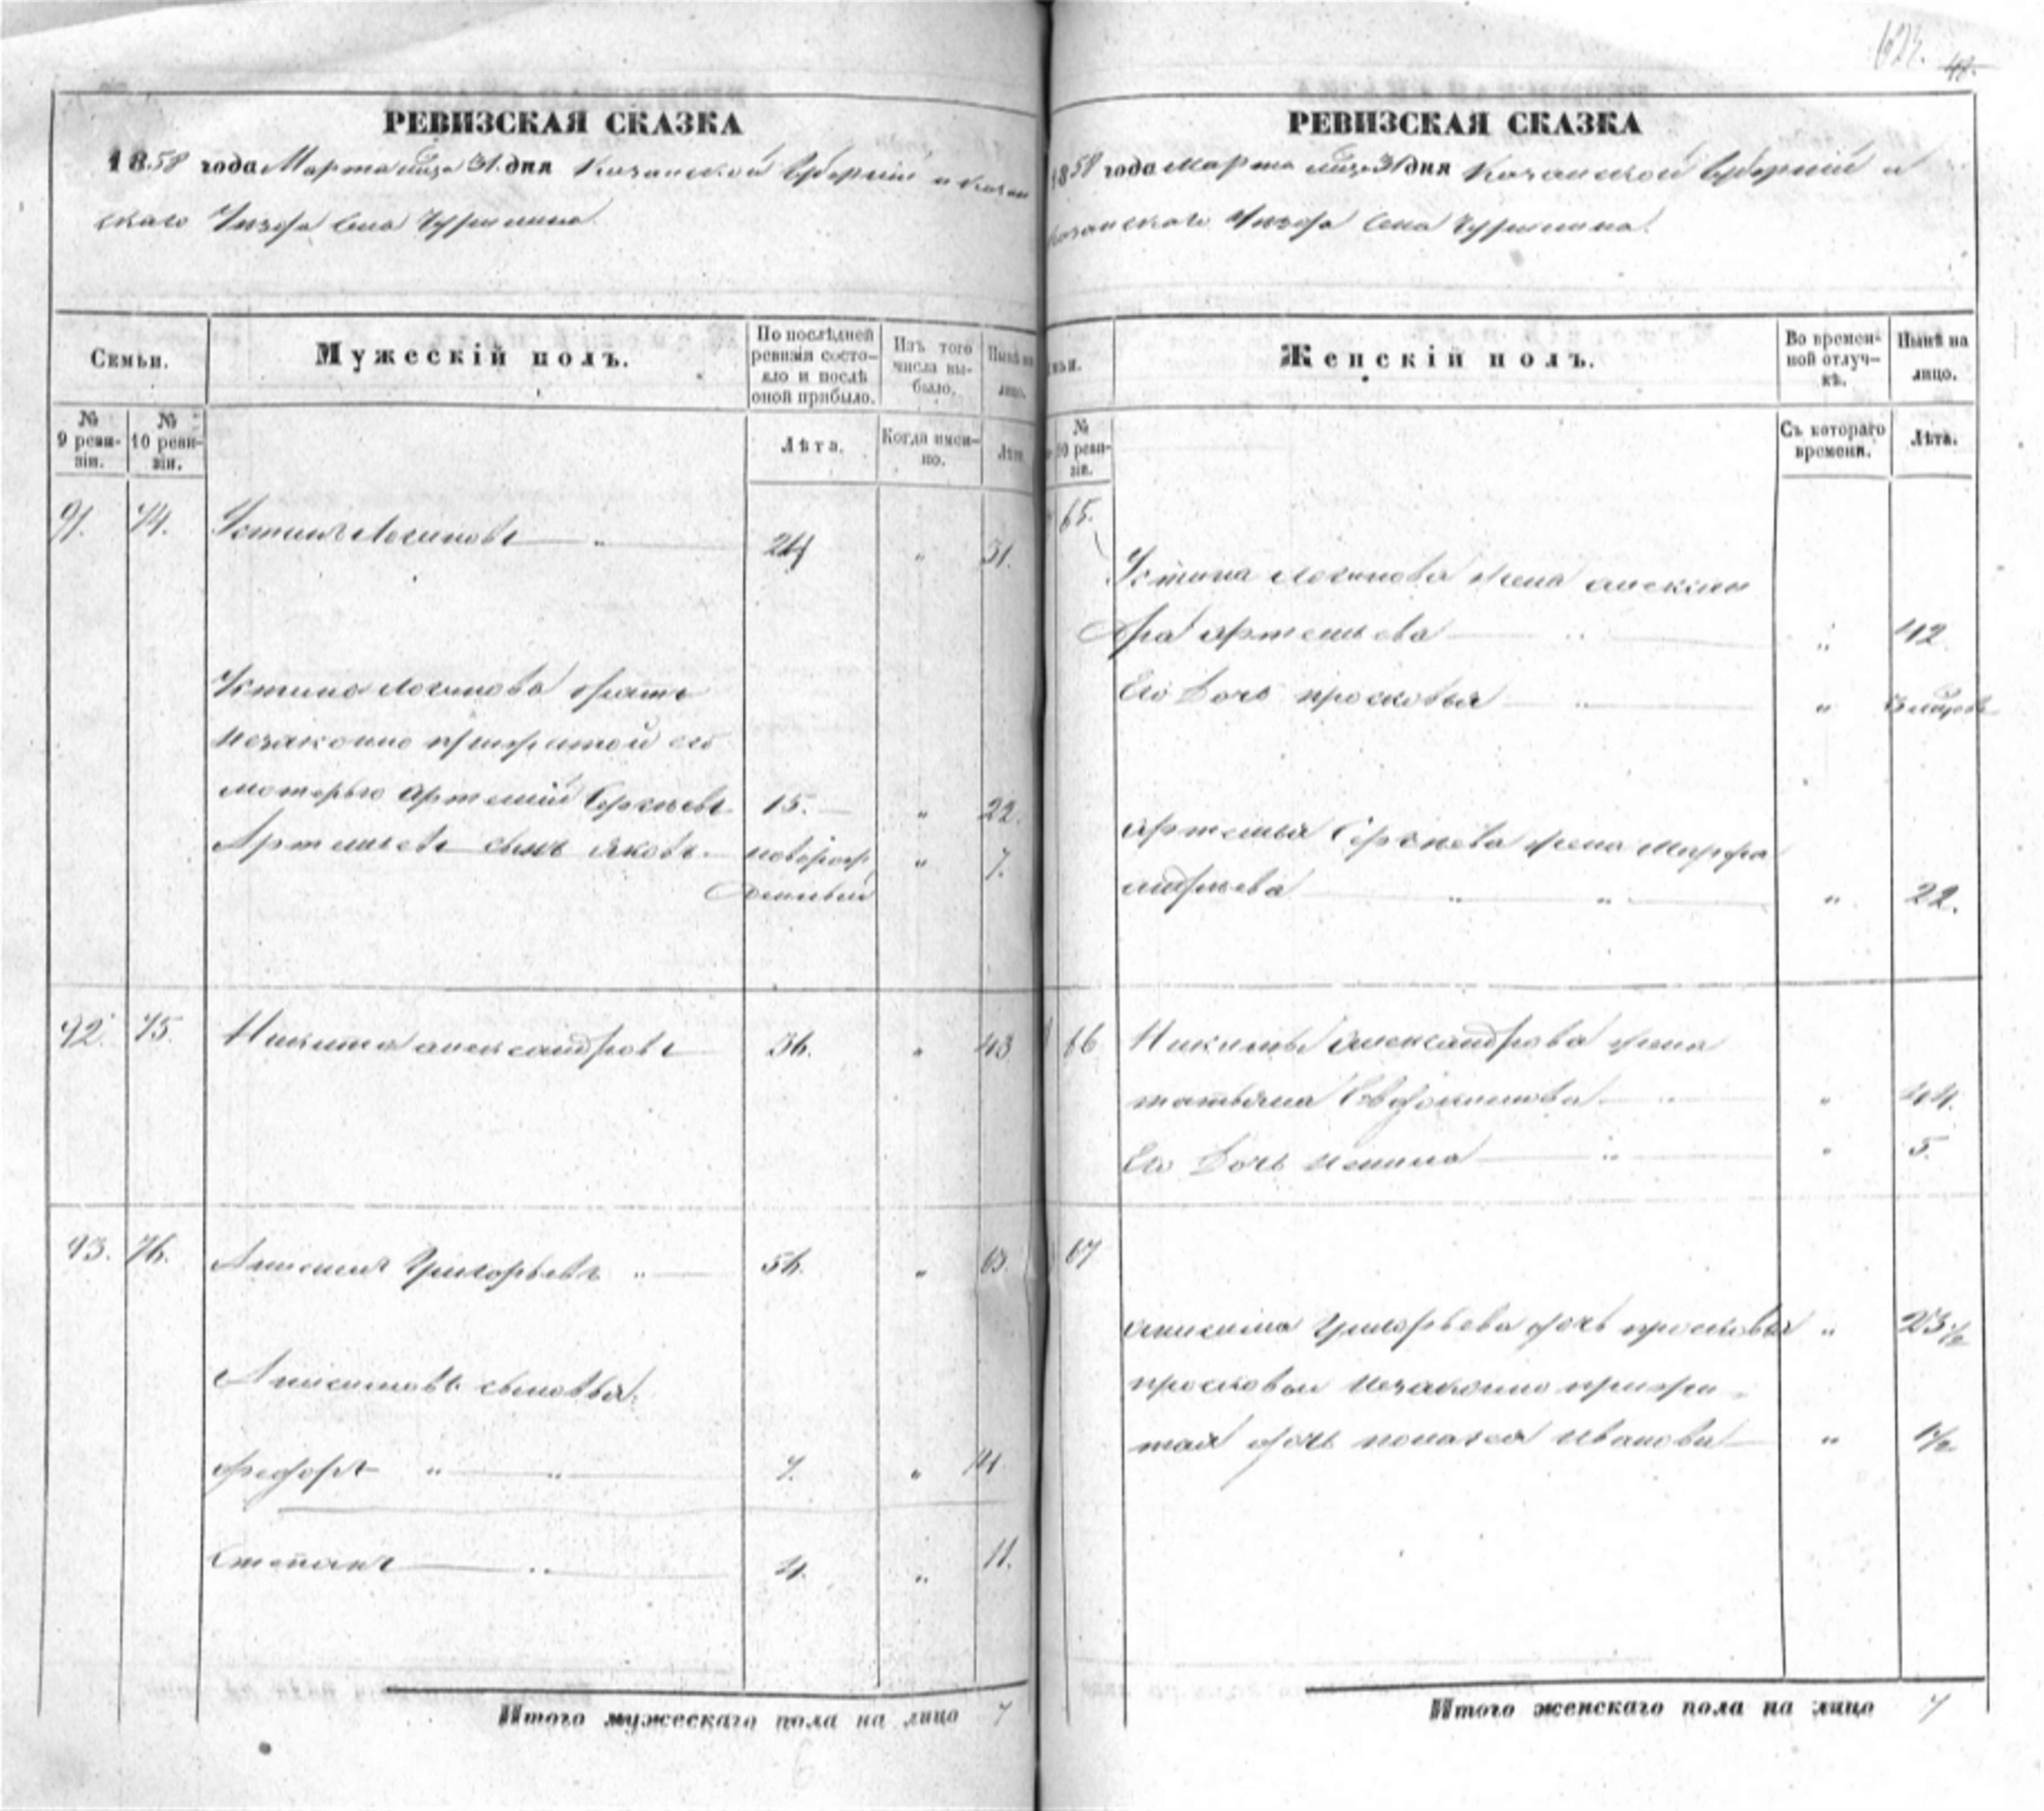 623. 42.
РЕВИЗСКАЯ СКАЗКА
1858 года Марта мца 31. дня Казанской Губерніи и Казан
скаго Уезда Села
Семьи.
Мужескій полъ.
По послѣдней
ревизіи состо-
яло и послѣ
оной прибыло.
Изъ того
числа вы-
было.
Нынѣ на
лицо.
№
9 реви-
зіи.
№
10 реви-
зіи.
Лѣта.
Когда имен-
но.
Лѣта
91. 74. Устинъ Логиновъ 24 " 31.
Устина Логинова братъ
незаконно прижитой его
матерью Артемій Сергѣевъ 15. " 22.
Артемьевъ сынъ Яковъ. новорож " 7.
денный
92. 75. Никита Александровъ 36. " 43
93. 76. Анисимъ Григорьевъ " 56. " 63.
Анисимовы сыновья.
Федоръ " " 7. " 14
Степанъ " 4. " 11.
Итого мужескаго пола на лицо 7
6
РЕВИЗСКАЯ СКАЗКА
1858 года Марта мца 31 дня Казанской Губерніи и
Казанскаго Уезда Села
мьи.
Женскій полъ.
Во времен-
ной отлуч-
кѣ.
Нынѣ на
лицо.
№
10 реви-
зіи.
Съ котораго
времени.
Лѣта.
65.
Устина Логинова жена Алексан
дра Артемьева " " 42
Его Дочь Просковья " "
Артемья Сергѣева жена Марфа
Андреева " " " 22.
66 Никиты Александрова жена
Татьяна Евдокимова " " 44.
Его Дочь Ненила " " 5.
67
Анисима Григорьева дочь Просковья " 23 1/2
Просковьи незаконно прижи-
тая дочь Палагея Иванова " 1/2
Итого женскаго пола на лицо 7